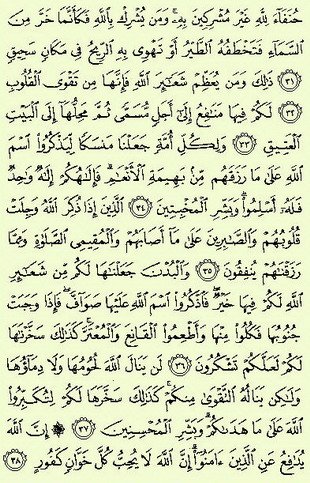 حُنَفَآءَ لِلَّهِ غَيْرَ مُشْرِكِينَ بِهِۦ ۚ وَمَن يُشْرِكْ بِٱللَّهِ فَكَأَنَّمَا خَرَّ مِنَ
ٱلسَّمَآءِ فَتَخْطَفُهُ ٱلطَّيْرُ أَوْ تَهْوِى بِهِ ٱلرِّيحُ فِى مَكَانٍ سَحِيقٍ
٣١ ذَٰلِكَ وَمَن يُعَظِّمْ شَعَـٰٓئِرَ ٱللَّهِ فَإِنَّهَا مِن تَقْوَى ٱلْقُلُوبِ
٣٢ لَكُمْ فِيهَا مَنَـٰفِعُ إِلَىٰٓ أَجَلٍ مُّسَمًّى ثُمَّ مَحِلُّهَآ إِلَى ٱلْبَيْتِ
ٱلْعَتِيقِ ٣٣ وَلِكُلِّ أُمَّةٍ جَعَلْنَا مَنسَكًا لِّيَذْكُرُوا۟ ٱسْمَ
ٱللَّهِ عَلَىٰ مَا رَزَقَهُم مِّنۢ بَهِيمَةِ ٱلْأَنْعَـٰمِ ۗ فَإِلَـٰهُكُمْ إِلَـٰهٌ وَٰحِدٌ
فَلَهُۥٓ أَسْلِمُوا۟ ۗ وَبَشِّرِ ٱلْمُخْبِتِينَ ٣٤ ٱلَّذِينَ إِذَا ذُكِرَ ٱللَّهُ وَجِلَتْ
قُلُوبُهُمْ وَٱلصَّـٰبِرِينَ عَلَىٰ مَآ أَصَابَهُمْ وَٱلْمُقِيمِى ٱلصَّلَوٰةِ وَمِمَّا
رَزَقْنَـٰهُمْ يُنفِقُونَ ٣٥ وَٱلْبُدْنَ جَعَلْنَـٰهَا لَكُم مِّن شَعَـٰٓئِرِ
ٱللَّهِ لَكُمْ فِيهَا خَيْرٌ ۖ فَٱذْكُرُوا۟ ٱسْمَ ٱللَّهِ عَلَيْهَا صَوَآفَّ ۖ فَإِذَا وَجَبَتْ
جُنُوبُهَا فَكُلُوا۟ مِنْهَا وَأَطْعِمُوا۟ ٱلْقَانِعَ وَٱلْمُعْتَرَّ ۚ كَذَٰلِكَ سَخَّرْنَـٰهَا
لَكُمْ لَعَلَّكُمْ تَشْكُرُونَ ٣٦ لَن يَنَالَ ٱللَّهَ لُحُومُهَا وَلَا دِمَآؤُهَا
وَلَـٰكِن يَنَالُهُ ٱلتَّقْوَىٰ مِنكُمْ ۚ كَذَٰلِكَ سَخَّرَهَا لَكُمْ لِتُكَبِّرُوا۟
ٱللَّهَ عَلَىٰ مَا هَدَىٰكُمْ ۗ وَبَشِّرِ ٱلْمُحْسِنِينَ ٣٧ ۞ إِنَّ ٱللَّهَ
يُدَٰفِعُ عَنِ ٱلَّذِينَ ءَامَنُوٓا۟ ۗ إِنَّ ٱللَّهَ لَا يُحِبُّ كُلَّ خَوَّانٍ كَفُورٍ ٣٨